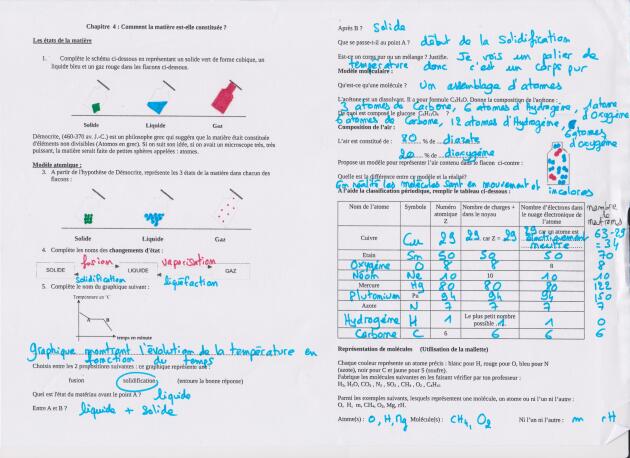 Chapitre 4 : Comment la matière est-elle constituée ?
Les états de la matière
1. Complète le schéma ci-dessous en représentant un solide vert de forme cubique, un
liquide bleu et un gaz rouge dans les flacons ci-dessous.
Solide Liquide Gaz
Démocrite, (460-370 av. J.-C.) est un philosophe grec qui suggéra que la matière était constituée
d'éléments non divisibles (Atomos en grec). Si on suit son idée, si on avait un microscope très, très
puissant, la matière serait faite de petites sphères appelées : atomes.
Modèle atomique :
3. A partir de l'hypothèse de Démocrite, représente les 3 états de la matière dans chacun des
flacons :
Solide Liquide Gaz
4. Complète les noms des changements d'état :
fusion vaporisation
SOLIDE LIQUIDE GAZ
solidification liquéfaction
5. Complète le nom du graphique suivant :
Température en °C
A B
temps en minute
graphique montrant l'évolution de la température en
fonction du temps
Choisis entre les 2 propositions suivantes : ce graphique représente une :
fusion solidification (entoure la bonne réponse)
Quel est l'état du matériau avant le point A ? liquide
Entre A et B ? liquide + solide
Après B ? Solide
Que se passe-t-il au point A ? début de la Solidification
Est-ce un corps pur ou un mélange ? Justifie. Je vois un palier de
température donc c'est un corps pur
Modèle moléculaire :
Qu'est-ce qu'une molécule ? Un assemblage d'atomes
L'acétone est un dissolvant. Il a pour formule C₃H₆O. Donne la composition de l'acétone :
3 atomes de Carbone, 6 atomes d'Hydrogène, 1 atome d'Oxygène
De quoi est composé le glucose C₆H₁₂O₆ ?
6 atomes de Carbone, 12 atomes d'Hydrogène, 6 atomes d'oxygène
Composition de l'air :
L'air est constitué de : 80 % de diazote
20 % de dioxygène
Propose un modèle pour représenter l'air contenu dans le flacon ci-contre :
Quelle est la différence entre ce modèle et la réalité?
En réalité les molécules sont en mouvement et incolores
A l'aide la classification périodique, remplir le tableau ci-dessous :
Nom de l'atome Symbole Numéro atomique Z Nombre de charges + dans le noyau Nombre d'électrons dans le nuage électronique de l'atome nombre de neutrons
Cuivre Cu 29 29 car Z = 29 29 car un atome est électriquement neutre 63-29 = 34
Etain Sn 50 50 50 70
Oxygène O 8 8 8 8
Néon Ne 10 10 10 10
Mercure Hg 80 80 80 122
Plutonium Pu 94 94 94 150
Azote N 7 7 7 7
Hydrogène H 1 Le plus petit nombre possible : 1 1 0
Carbone C 6 6 6 6
Représentation de molécules (Utilisation de la mallette)
Chaque couleur représente un atome précis : blanc pour H, rouge pour O, bleu pour N
(azote), noir pour C et jaune pour S (soufre).
Fabrique les molécules suivantes en les faisant vérifier par ton professeur :
H₂, H₂O, CO₂ , N₂ , SO₂ , CH₄ , O₂
Parmi les exemples suivants, lesquels représentent une molécule, un atome ou ni l'un ni l'autre :
O, H, m, CH₄, O₂, Mg, rH.
Atome(s) : O, H, Mg Molécule(s) : CH₄, O₂ Ni l'un ni l'autre : m rH